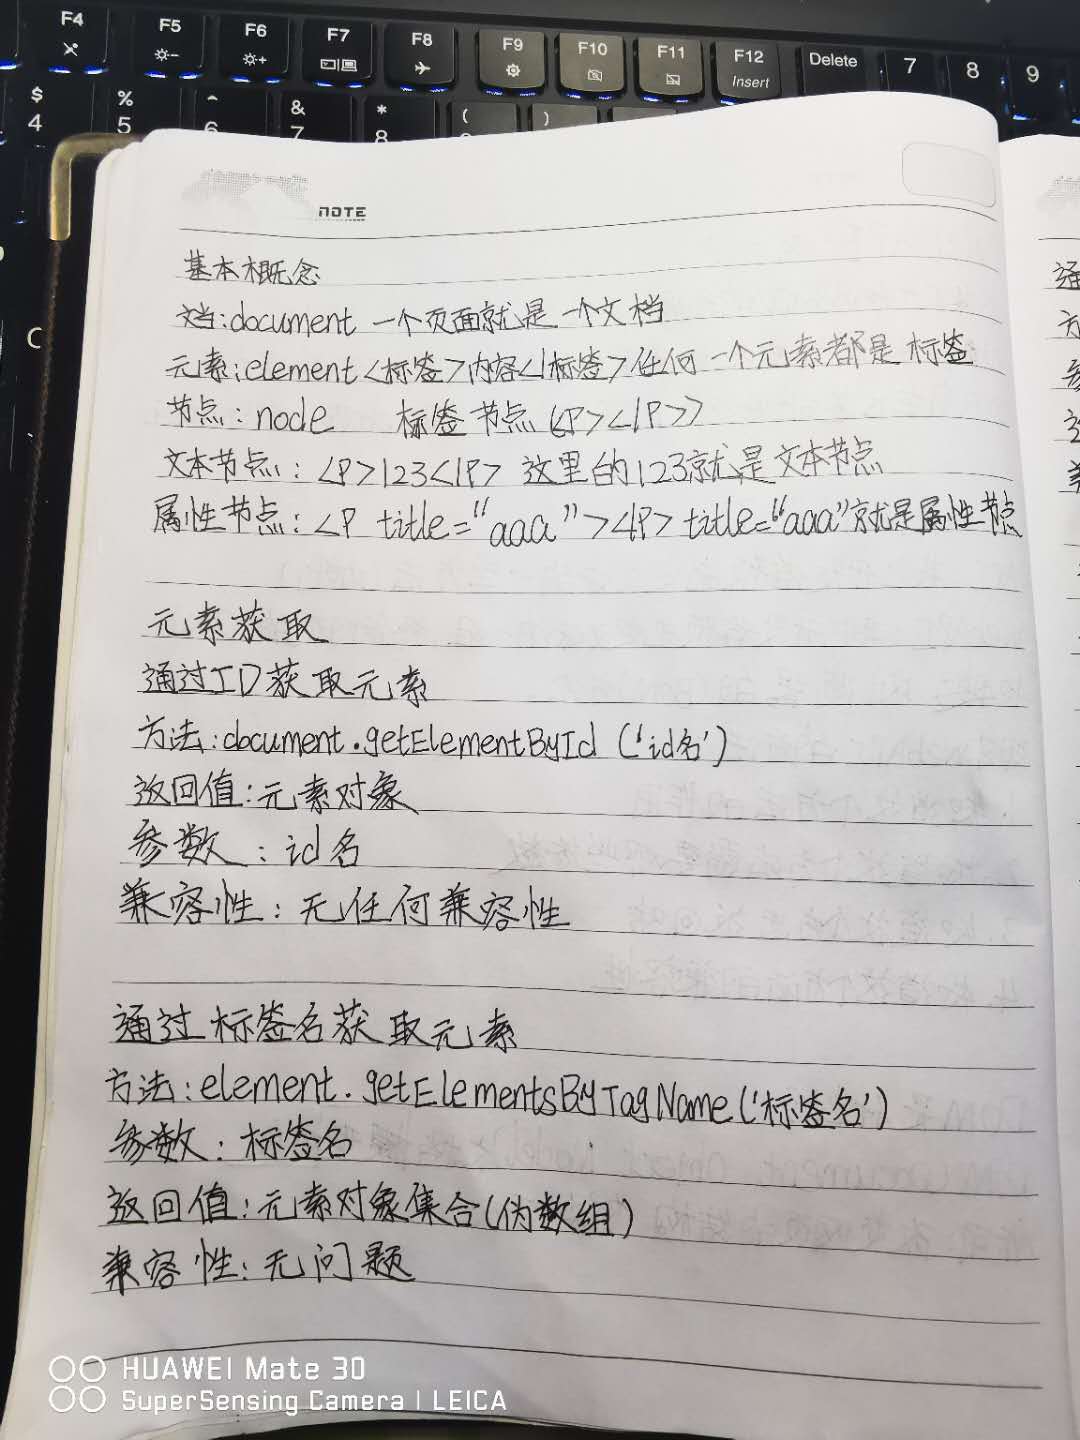 F4 F5 F6 F7 F8 F9 F10 F11 F12 Insert Delete 7 8 9
$ 4 % 5 ^ 6 & 7 * 8 ( )
C
NOTE
基本概念
文档:document 一个页面就是一个文档
元素:element<标签>内容</标签>任何一个元素都是标签
节点:node 标签节点(<P></P>)
文本节点:<P>123</P> 这里的123就是文本节点
属性节点:<P title="aaa"></P> title="aaa"就是属性节点
元素获取
通过ID获取元素
方法:document.getElementById('id名')
返回值:元素对象
参数:id名
兼容性:无任何兼容性
通过标签名获取元素
方法:element.getElementsByTagName('标签名')
参数:标签名
返回值:元素对象集合(伪数组)
兼容性:无问题
HUAWEI Mate 30
SuperSensing Camera | LEICA